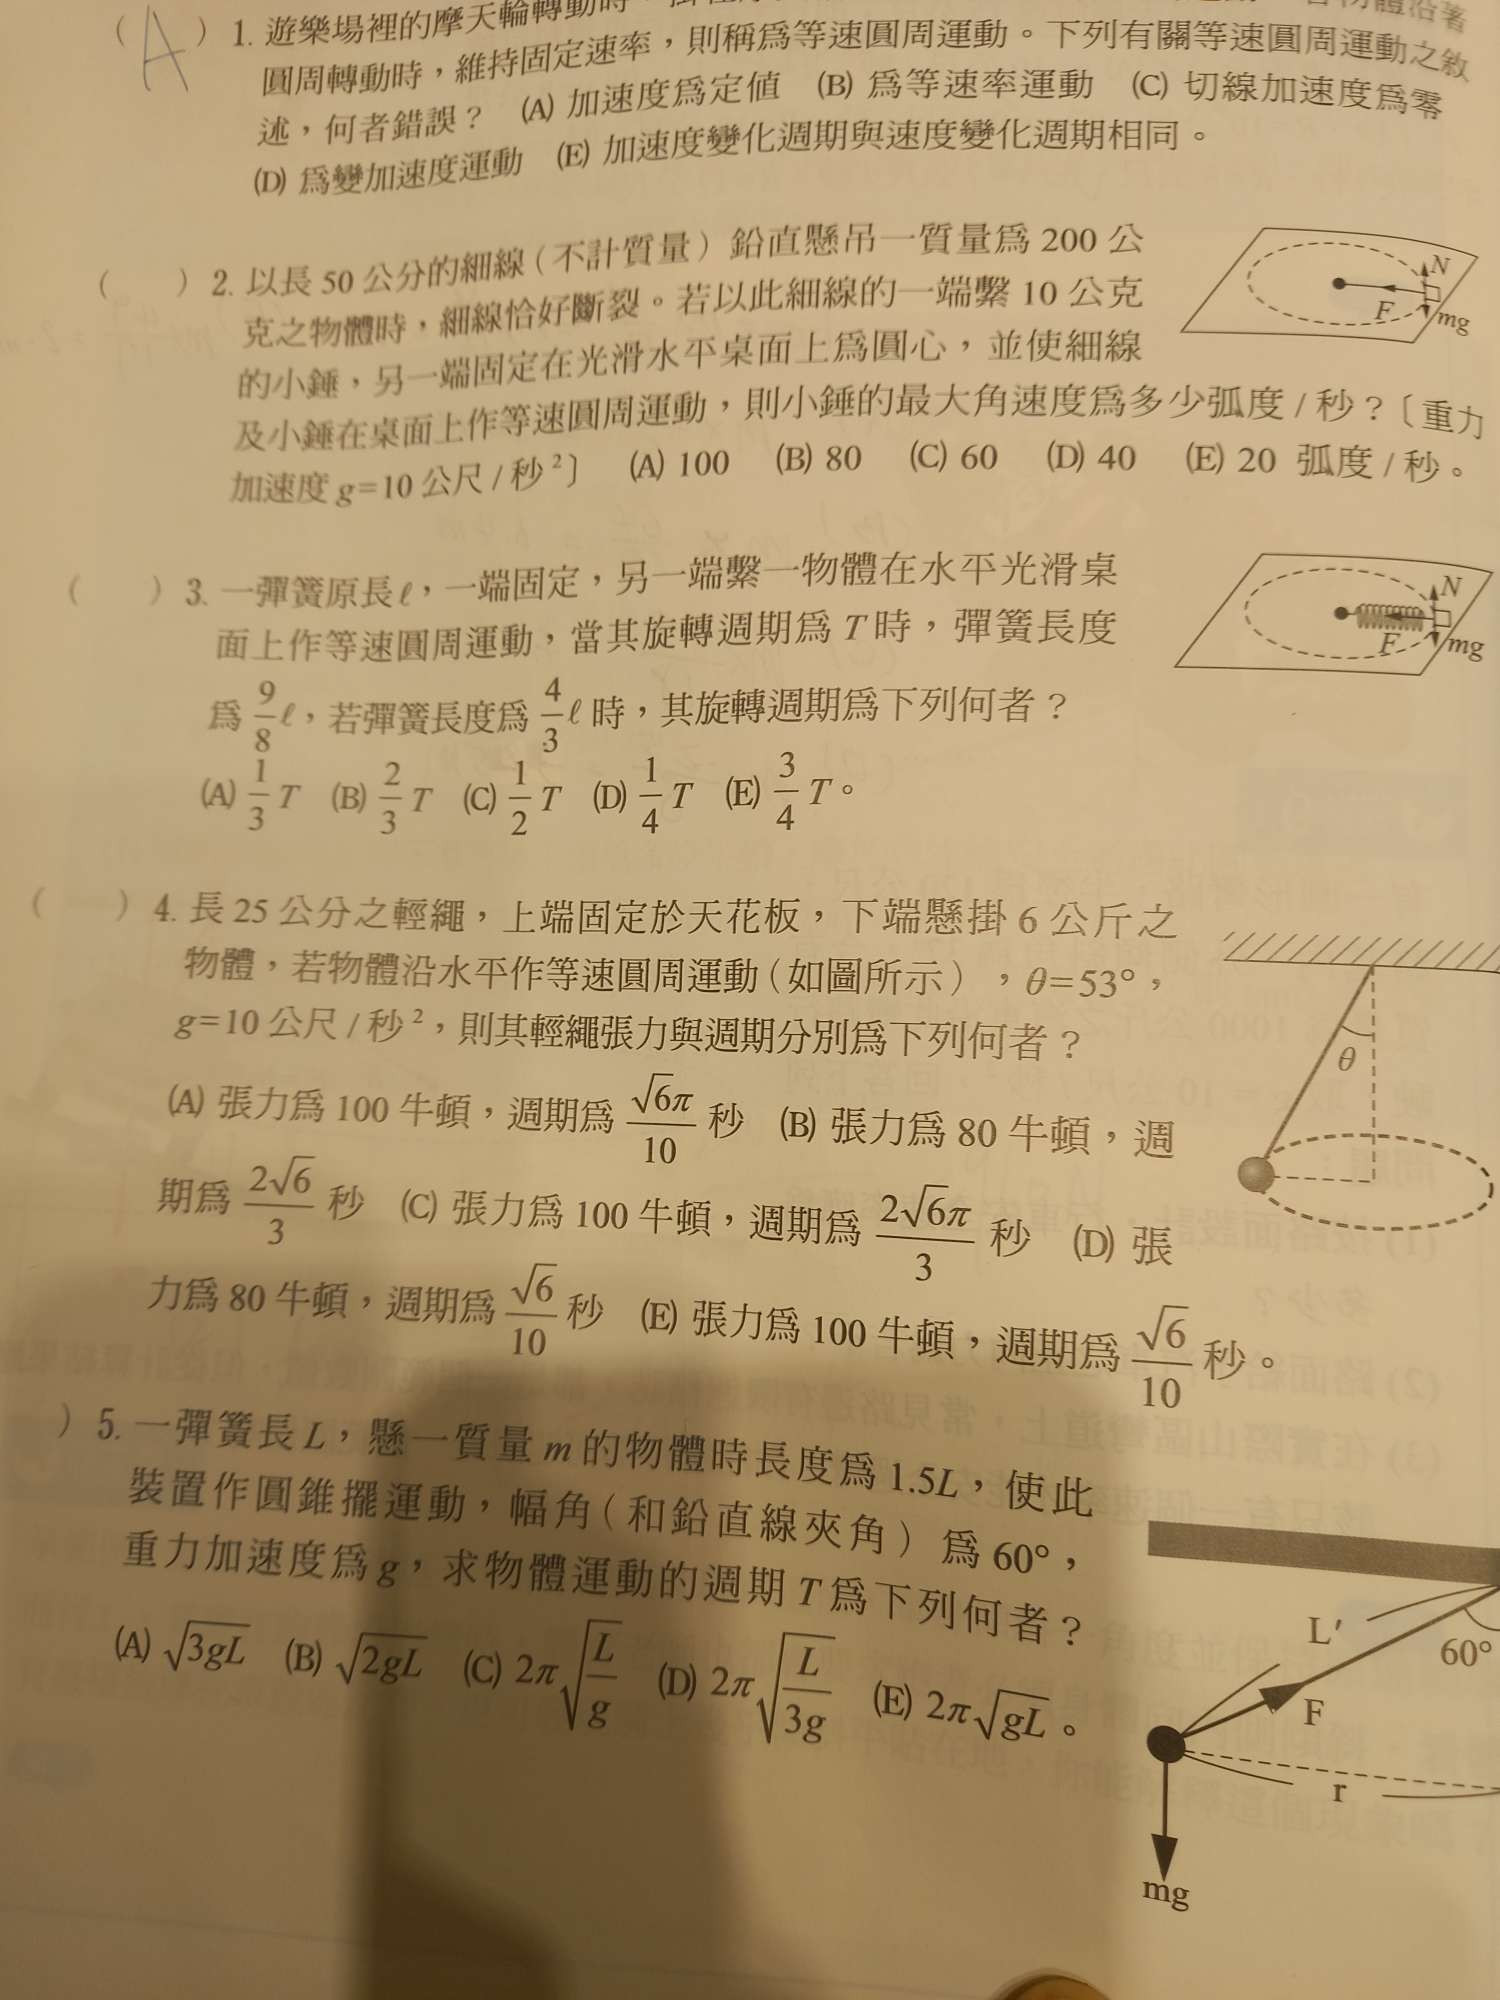 (A) 1. 遊樂場裡的摩天輪轉動時
圓周轉動時，維持固定速率，則稱為等速圓周運動。下列有關等速圓周運動之敘
述，何者錯誤？ (A) 加速度為定值 (B) 為等速率運動 (C) 切線加速度為零
(D) 為變加速度運動 (E) 加速度變化週期與速度變化週期相同。
( ) 2. 以長 50 公分的細線（不計質量）鉛直懸吊一質量為 200 公
克之物體時，細線恰好斷裂。若以此細線的一端繫 10 公克
的小錘，另一端固定在光滑水平桌面上為圓心，並使細線
及小錘在桌面上作等速圓周運動，則小錘的最大角速度為多少弧度 / 秒？〔重力
加速度 g=10 公尺 / 秒²〕 (A) 100 (B) 80 (C) 60 (D) 40 (E) 20 弧度 / 秒。
N
F
mg
( ) 3. 一彈簧原長 ℓ，一端固定，另一端繫一物體在水平光滑桌
面上作等速圓周運動，當其旋轉週期為 T 時，彈簧長度
為 9/8 ℓ，若彈簧長度為 4/3 ℓ 時，其旋轉週期為下列何者？
(A) 1/3 T (B) 2/3 T (C) 1/2 T (D) 1/4 T (E) 3/4 T。
N
F
mg
( ) 4. 長 25 公分之輕繩，上端固定於天花板，下端懸掛 6 公斤之
物體，若物體沿水平作等速圓周運動（如圖所示），θ=53°，
g=10 公尺 / 秒²，則其輕繩張力與週期分別為下列何者？
(A) 張力為 100 牛頓，週期為 √6π/10 秒 (B) 張力為 80 牛頓，週
期為 2√6/3 秒 (C) 張力為 100 牛頓，週期為 2√6π/3 秒 (D) 張
力為 80 牛頓，週期為 √6/10 秒 (E) 張力為 100 牛頓，週期為 √6/10 秒。
θ
) 5. 一彈簧長 L，懸一質量 m 的物體時長度為 1.5L，使此
裝置作圓錐擺運動，幅角（和鉛直線夾角）為 60°，
重力加速度為 g，求物體運動的週期 T 為下列何者？
(A) √3gL (B) √2gL (C) 2π√(L/g) (D) 2π√(L/3g) (E) 2π√gL。
L′
60°
F
r
mg